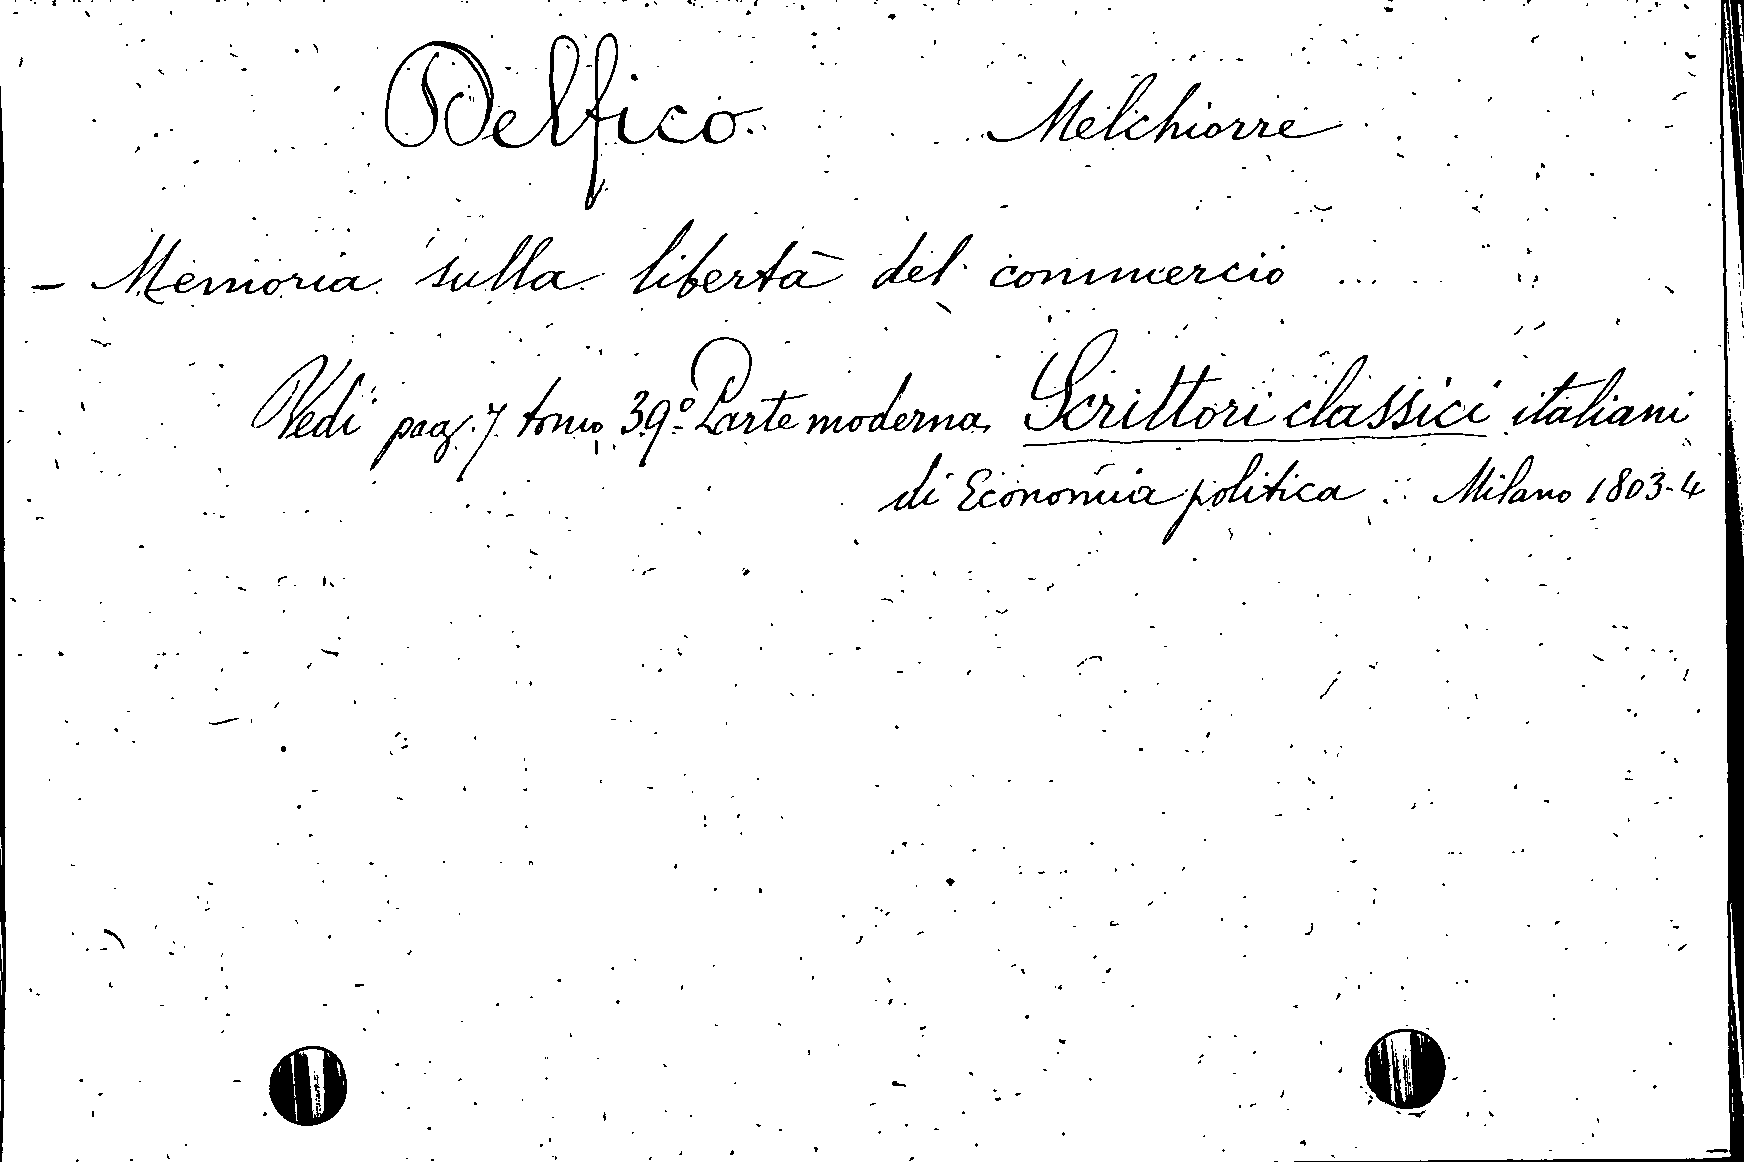 Delfico. Melchiorre
- Memoria sulla libertà del commercio ...
Vedi pag. 7 tomo 39º Parte moderna Scrittori classici italiani
di Economia politica .. Milano 1803-4